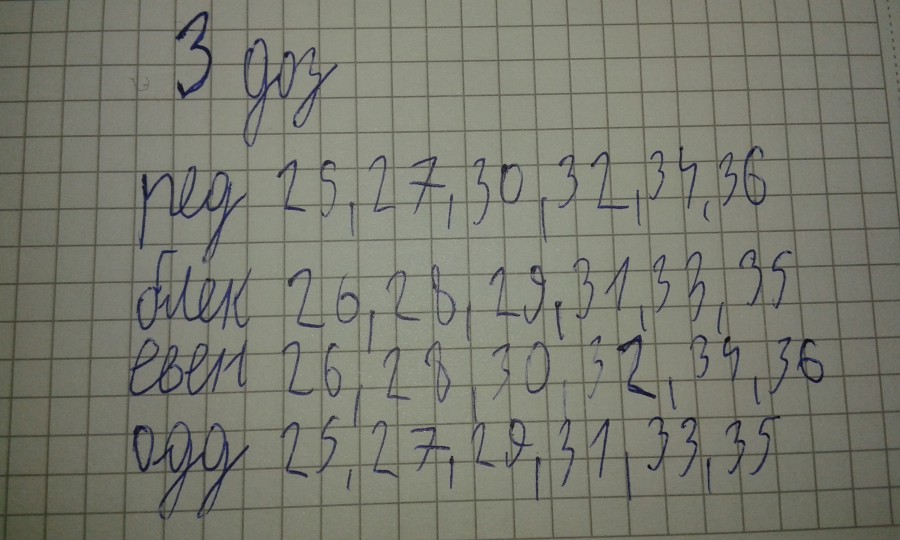 3 доз
ред 25, 27, 30, 32, 34, 36
блек 26, 28, 29, 31, 33, 35
евен 26, 28, 30, 32, 34, 36
одд 25, 27, 29, 31, 33, 35